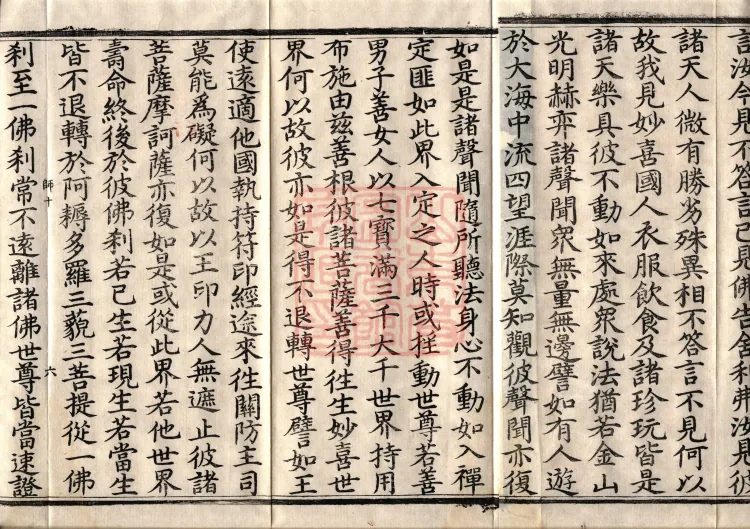 言汝今見不答言已見佛告舍利弗汝見彼
諸天人微有勝劣殊異相不答言不見何以
故我見妙喜國人衣服飲食及諸珍玩皆是
諸天樂具彼不動如來處眾說法猶若金山
光明赫弈諸聲聞眾無量無邊譬如有人遊
於大海中流四望涯際莫知觀彼聲聞亦復
如是是諸聲聞隨所聽法身心不動如入禪
定匪如此界入定之人時或抂動世尊若善
男子善女人以七寶滿三千大千世界持用
布施由兹善根彼諸菩薩善得往生妙喜世
界何以故彼亦如是得不退轉世尊譬如王
使遠適他國執持符印經途來往關防主司
莫能為礙何以故以王印力人無遮止彼諸
菩薩摩訶薩亦復如是或從此界若他世界
壽命終後於彼佛剎若已生若現生若當生
皆不退轉於阿耨多羅三藐三菩提從一佛
師十 六
剎至一佛剎常不遠離諸佛世尊皆當速證